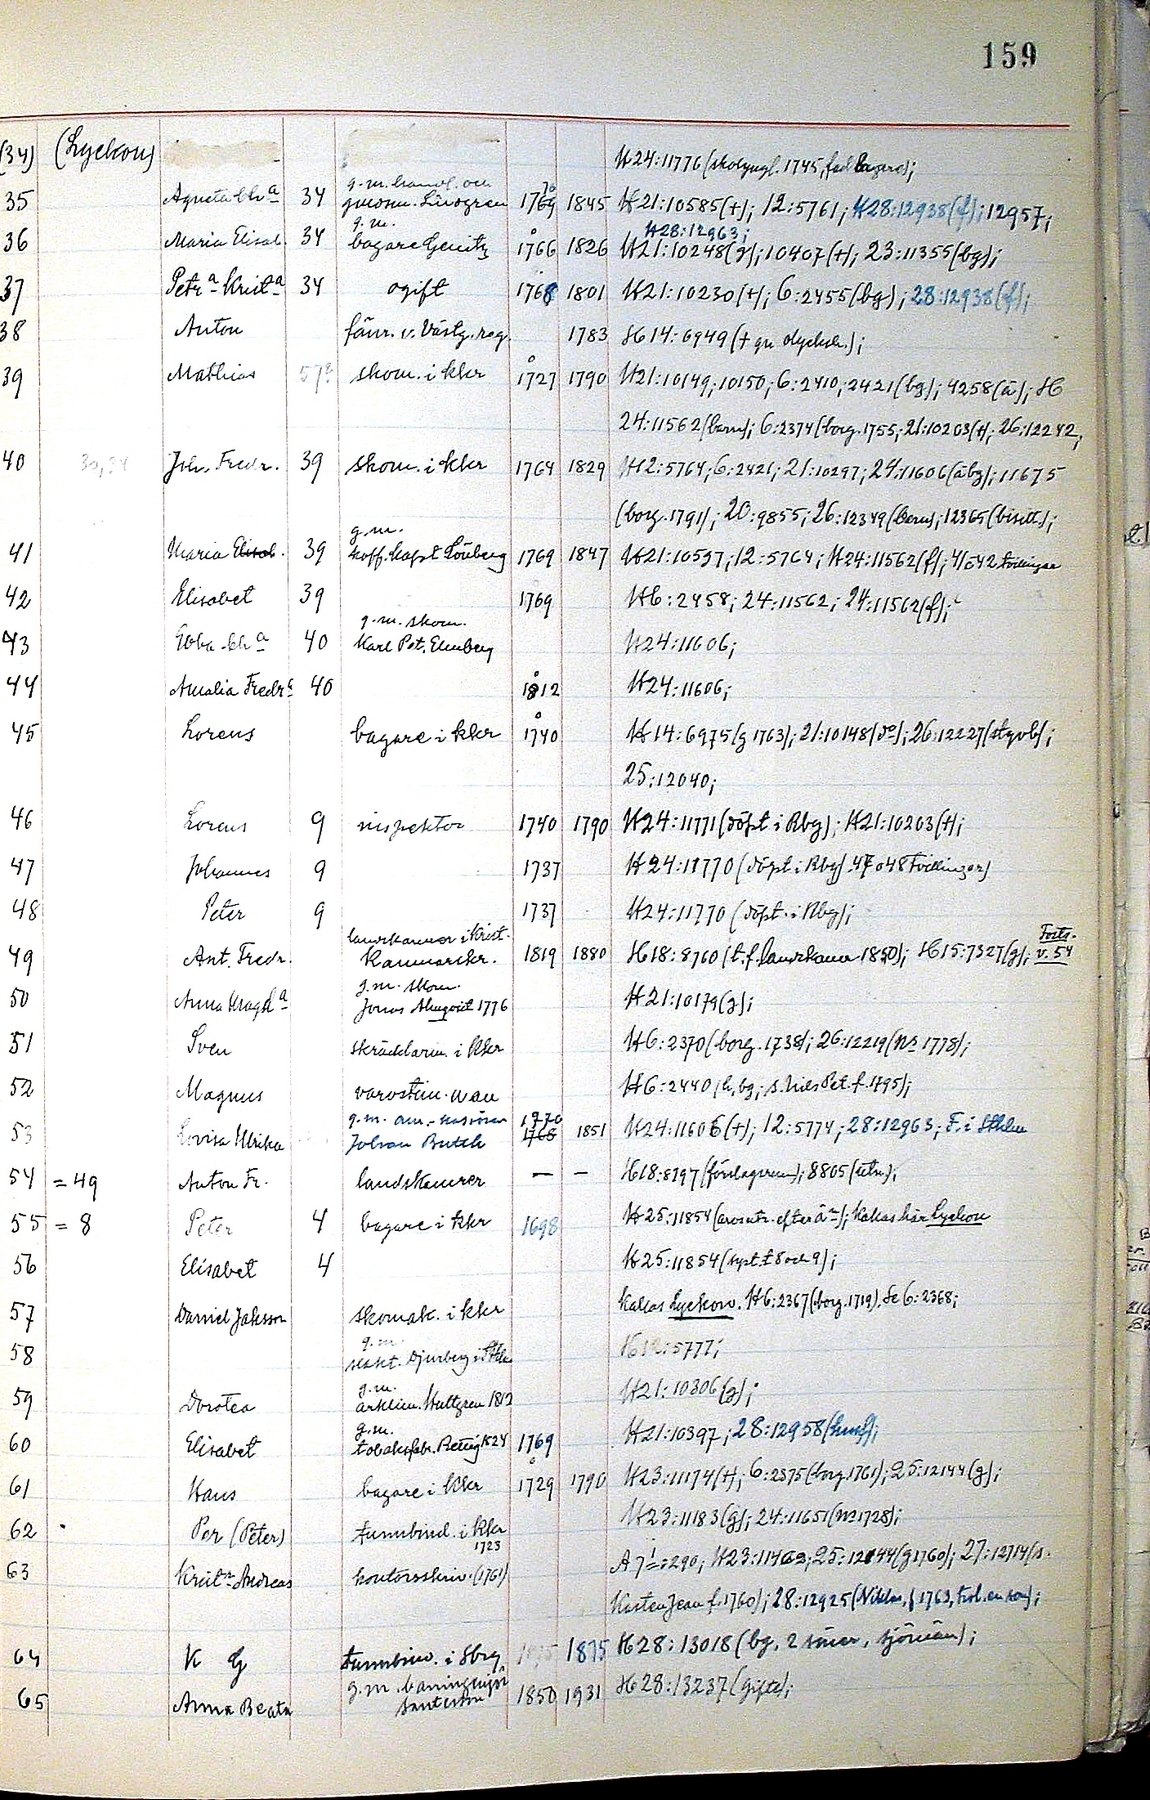 159
(34) (Lyckou)
H24:11776 (skolyngl. 1745, fad. bagare);
35 Agneta Chra 34 g.m. handl. och 1769 70 1845 H21:10585(+); 12:5761; H28:12938(f); 12957;
H28:12963;
36 Maria Elisab. 34 g.m. bagare Gentz 1766 1826 H21:10248(g); 10407(+); 23:11355(bg);
37 Petra Krista 34 ogift 1768 1801 H21:10230(+); 6:2455(bg); 28:12938(f);
38 Anton fänr. v. Västg. reg. 1783 H14:6949(+ gm olycksh.);
39 Mathias 57? skom. i kkr 1727 1790 H21:10149; 10150; 6:2410; 2421(bg); 4258(ä); H
24:11562(barn); 6:2374(borg. 1755; 21:10203(+); 26:12242;
40 Joh. Fredr. 39 skom. i kkr 1764 1829 H12:5764; 6:2421; 21:10297; 24:11606(äbg); 11675
(borg. 1791); 20:9855; 26:12349(barn); 12365(bisitt.);
41 Maria Elisab. 39 g.m. koff. kapt Lönberg 1769 1847 H21:10537; 12:5764; H24:11562(f); 41042 tvillingar
42 Elisabet 39 1769 H6:2458; 24:11562; 24:11562(f);
43 Ebba Chra 40 g.m. skom. Karl Pet. Ekuberg H24:11606;
44 Amalia Fredra 40 1812 H24:11606;
45 Lorens bagare i kkr 1740 H14:6975(g 1763); 21:10148(do); 26:12227(styvb);
25:12040;
46 Lorens 9 inspektor 1740 1790 H24:11771(döpt i Rbg); H21:10203(+);
47 Johannes 9 1737 H24:11770 (döpt i Rbg) 47 o 48 Tvillingar)
48 Peter 9 1737 H24:11770 (döpt i Rbg);
49 Ant. Fredr. landskamrer i Krist. Kammarskr. 1819 1880 H18:8760(t.f. landskamr 1850); H15:7327(g); Forts. v. 54
50 Anna Magda g.m. skom. Jonas Almqvist 1776 H21:10179(g);
51 Sven skräddarm. i kkr H6:2370(borg. 1738); 26:12219(No 1778);
52 Magnus varvstim. man H6:2440(h, bg; s. Nils Pet. f. 1795);
53 Lovisa Ulrika g.m. am.-kassören Johan Butsch 1770 1765 1851 H24:11606(+); 12:5774; 28:12963; F. i Sthlm
54 = 49 Anton Fr. landskamrer — — H18:8797(förslagsrum); 8805(utn);
55 = 8 Peter 4 bagare i kkr 1698 H25:11854(arvsutr. efter än); Kallas här Lyckou
56 Elisabet 4 H25:11854(syst. t 8 och 9);
57 Daniel Jaksson skomak. i kkr Kallas Lyckou. H6:2367(borg. 1719). Se 6:2368;
58 g.m. sekret. Djurberg i Sthlm H12:5777;
59 Dorotea g.m. artklim. Hultgren 1812 H21:10306(g);
60 Elisabet g.m. tobaksfabr. Rettig 1824 1769 H21:10397; 28:12958
61 Hans bagare i kkr 1729 1790 H23:11174(+); 6:2375(borg. 1761); 25:12144(g);
62 Per (Peter) tunnbind. i kkr 1723 H23:11183(g); 24:11651(No 1728);
63 Kristn Andreas kontorsskriv. (1761) A 71:290; H23:11463; 25:12144(g 1760); 27:12714(s.
Karsten Jean f. 1760); 28:12925(Niklas, f 1763, trol. en son);
64 K G tunnbind. i Sbrg 1875 H28:13018 (bg. 2 söner, sjömän);
65 Anna Beata g.m. 1850 1931 H28:13237(gifte);